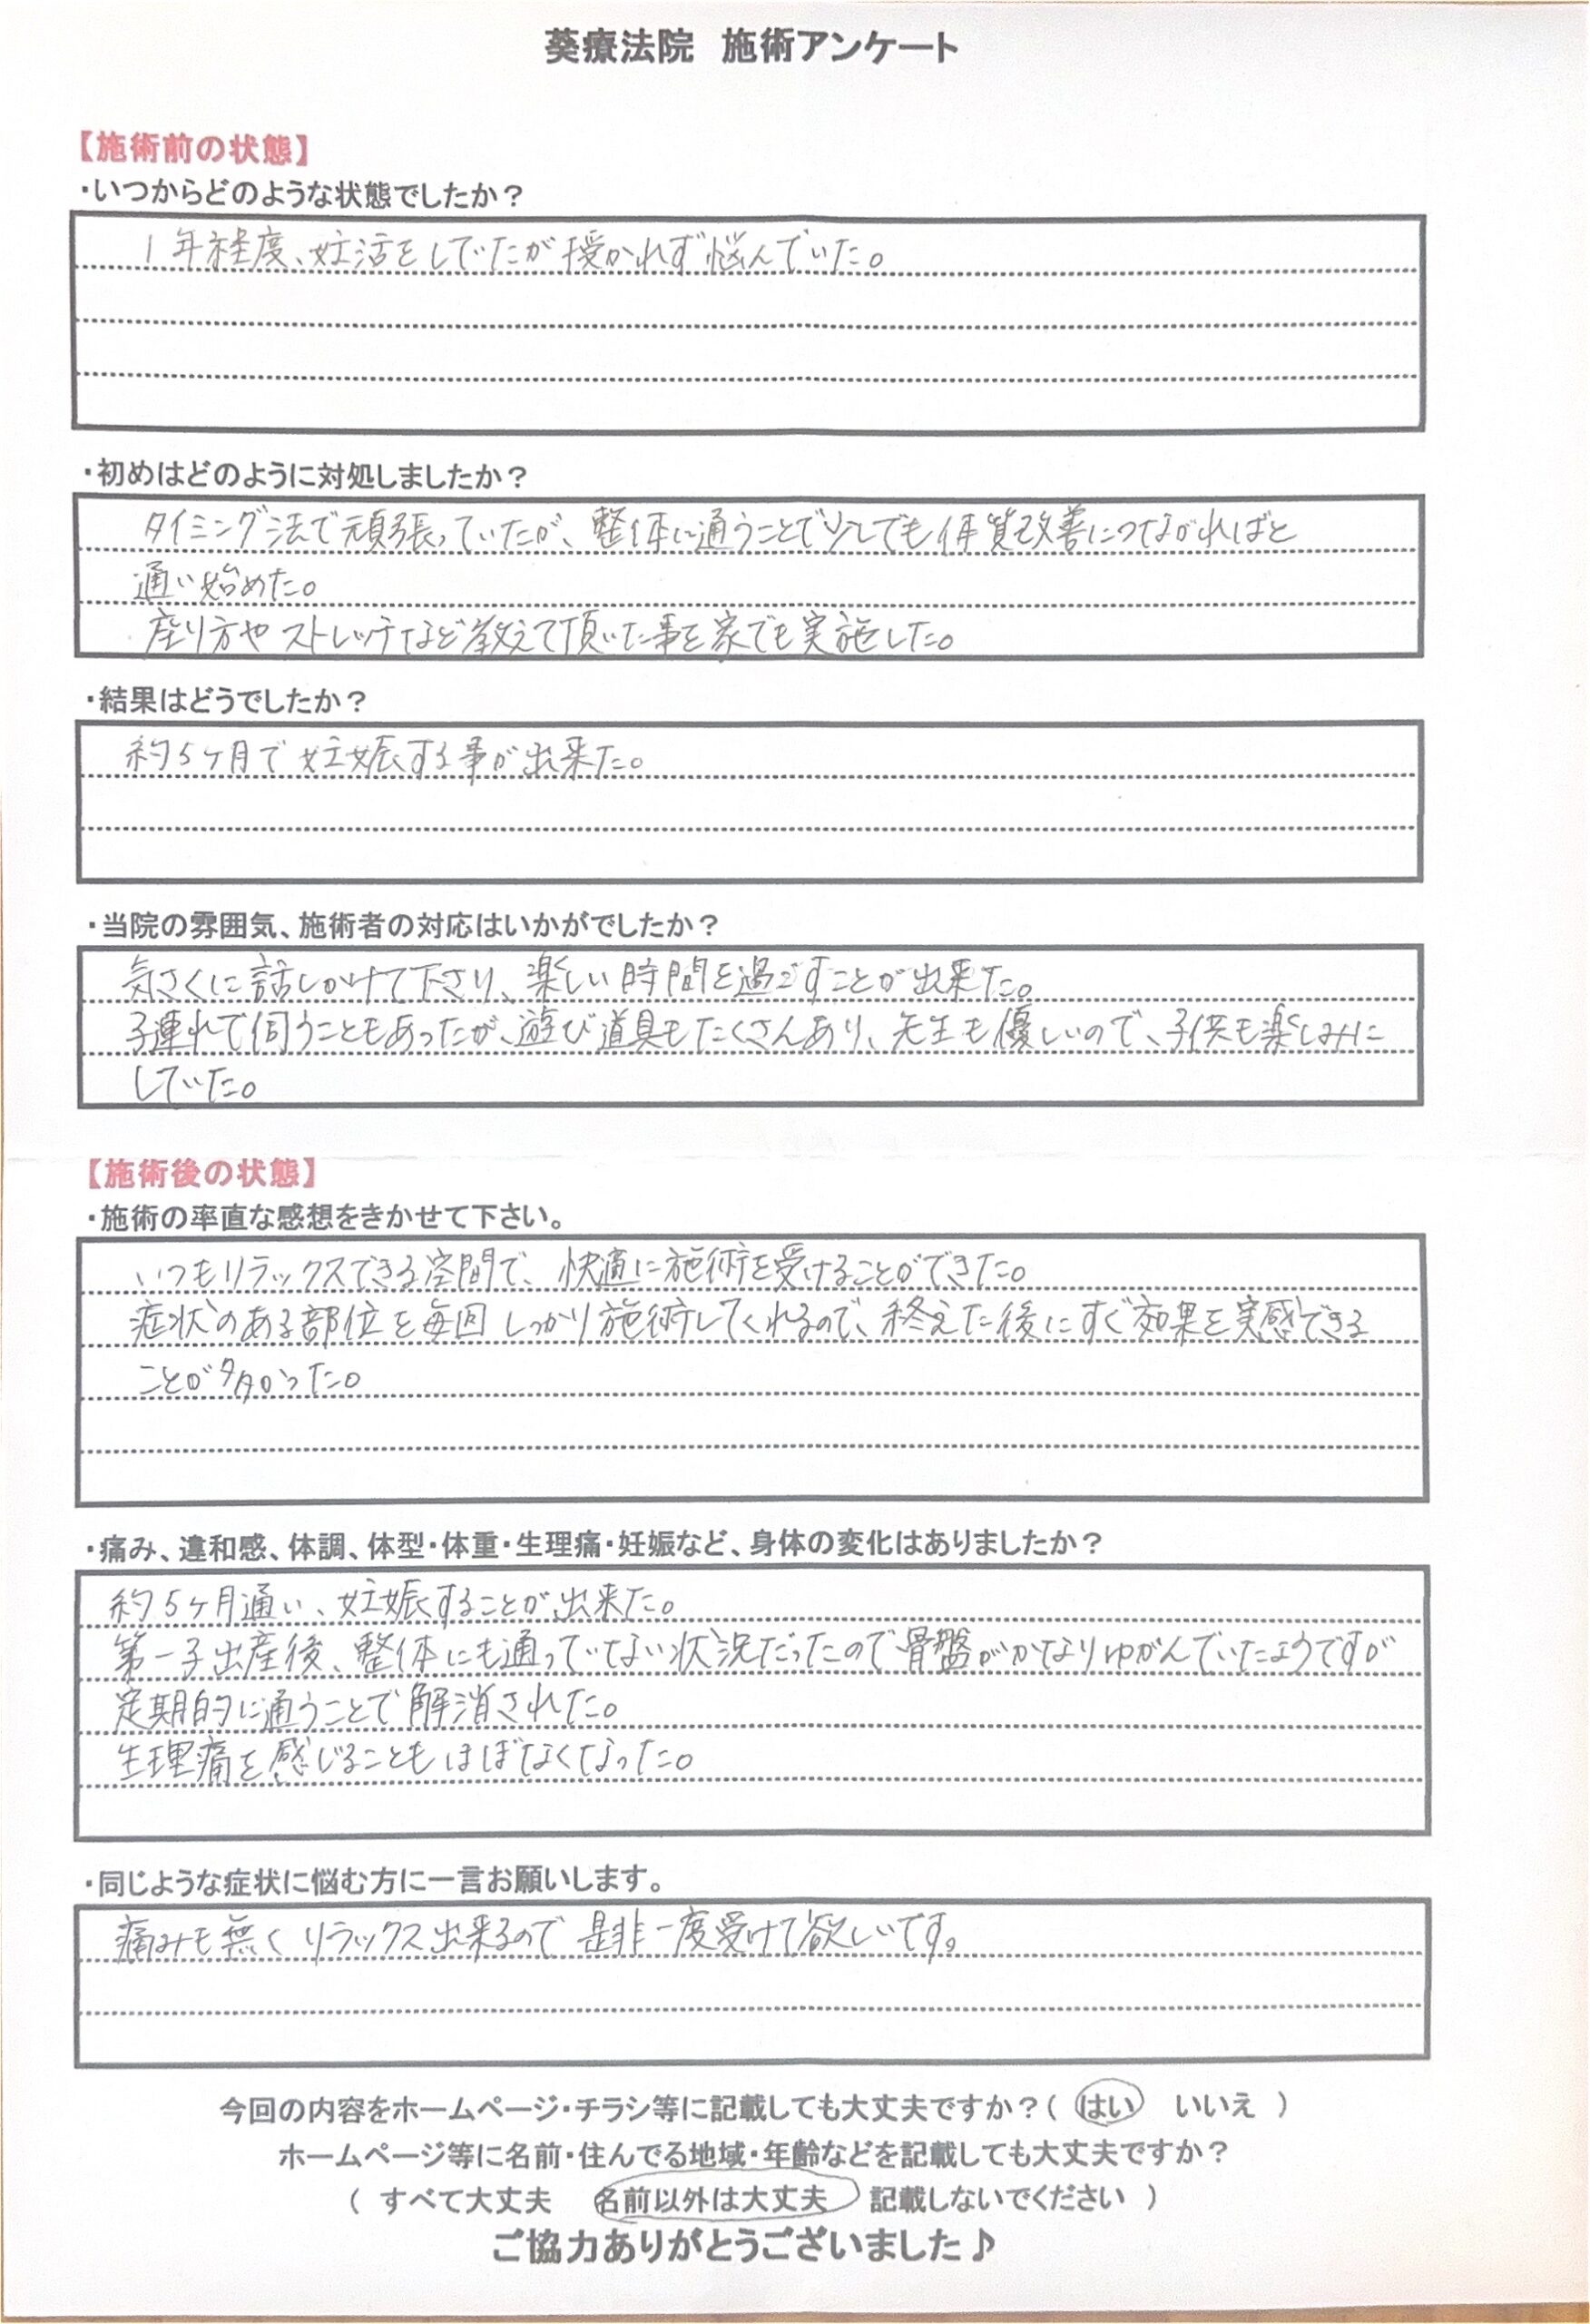 葵療法院 施術アンケート
【施術前の状態】
・いつからどのような状態でしたか？
1年程度、妊活をしていたが授かれず悩んでいた。
・初めはどのように対処しましたか？
タイミング法で頑張っていたが、整体に通うことで少しでも体質改善につながればと
通い始めた。
座り方やストレッチなど教えて頂いた事を家でも実施した。
・結果はどうでしたか？
約5ヶ月で妊娠する事が出来た。
・当院の雰囲気、施術者の対応はいかがでしたか？
気さくに話しかけて下さり、楽しい時間を過ごすことが出来た。
子連れで伺うこともあったが、遊び道具もたくさんあり、先生も優しいので、子供も楽しみに
していた。
【施術後の状態】
・施術の率直な感想をきかせて下さい。
いつもリラックスできる空間で、快適に施術を受けることができた。
症状のある部位を毎回しっかり施術してくれるので、終えた後にすぐ効果を実感できる
ことが多かった。
・痛み、違和感、体調、体型・体重・生理痛・妊娠など、身体の変化はありましたか？
約5ヶ月通い、妊娠することが出来た。
第一子出産後、整体にも通っていない状況だったので骨盤がかなりゆがんでいたようですが
定期的に通うことで解消された。
生理痛を感じることもほぼなくなった。
・同じような症状に悩む方に一言お願いします。
痛みも無くリラックス出来るので是非一度受けて欲しいです。
今回の内容をホームページ・チラシ等に記載しても大丈夫ですか？（ はい いいえ ）
ホームページ等に名前・住んでる地域・年齢などを記載しても大丈夫ですか？
（ すべて大丈夫 名前以外は大丈夫 記載しないでください ）
ご協力ありがとうございました♪